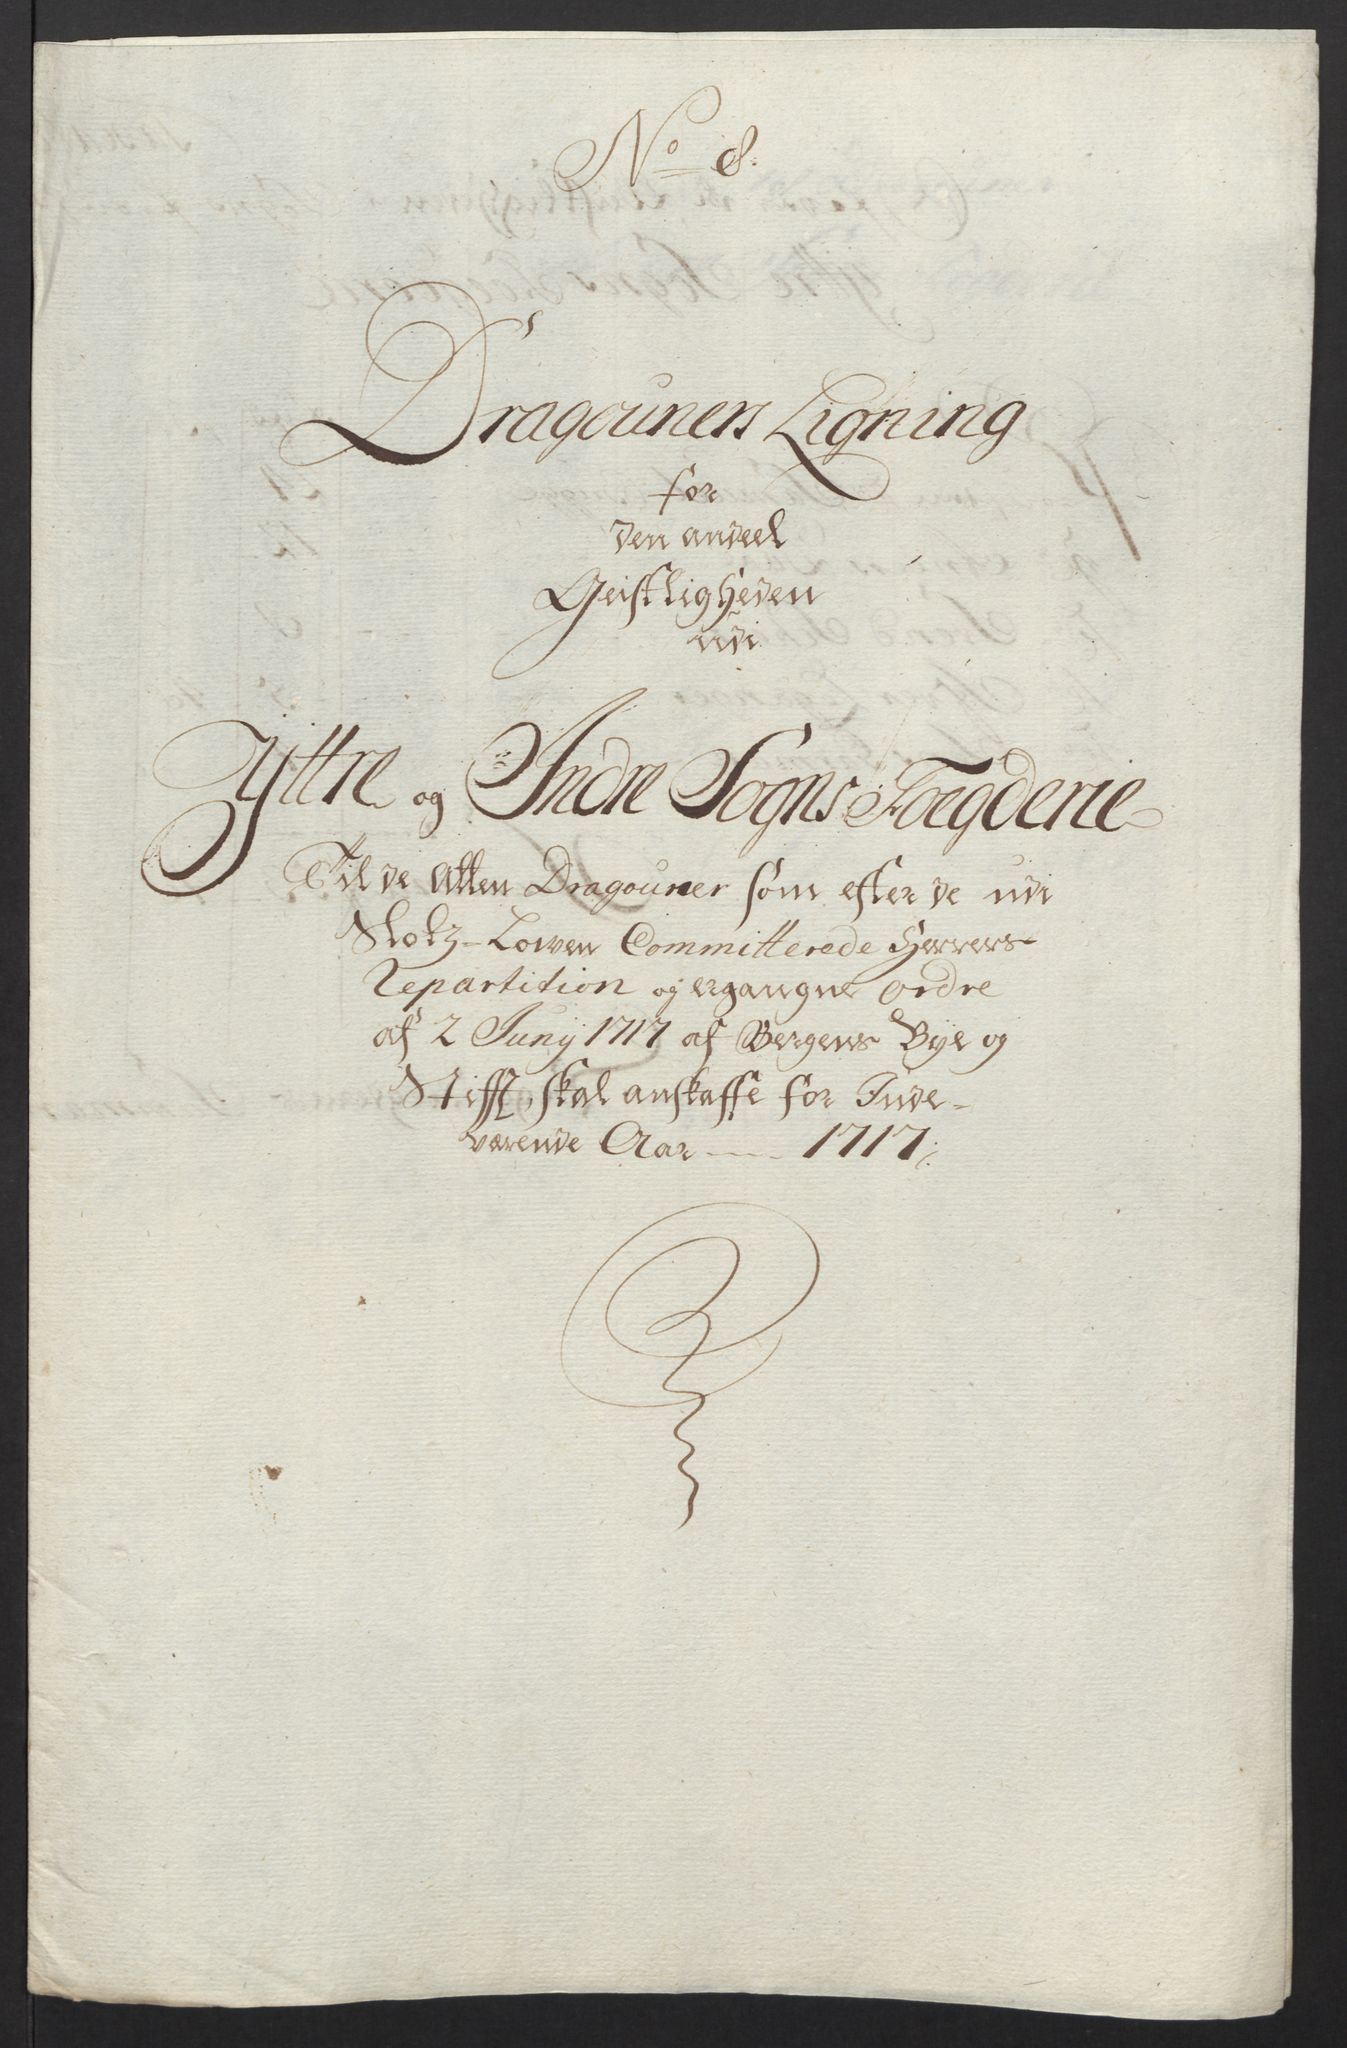 No 8.
Dragouners Ligning
for
den andeel
Geistligheden
udi
Yttre og Indre Sogns Foegderie
Til de Atten Dragouner som efter de udi
Slotz-Lowen Committerede Herrers
Repartition og ergangne ordre
af 2 Junij 1717 af Bergens Bye og
Stifft, skal anskaffe for Inde-
værende Aar 1717